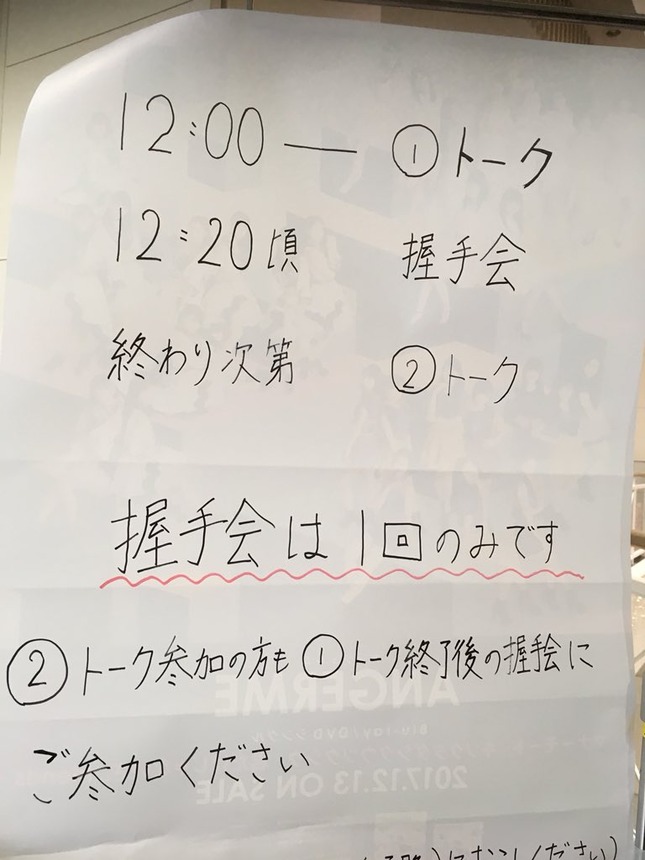 12:00 — ①トーク
12:20頃 握手会
終わり次第 ②トーク
握手会は1回のみです
②トーク参加の方も①トーク終了後の握手会に
ご参加ください
ANGERME
Blu-ray/DVD シングル
2017.12.13 ON SALE
におこしください)